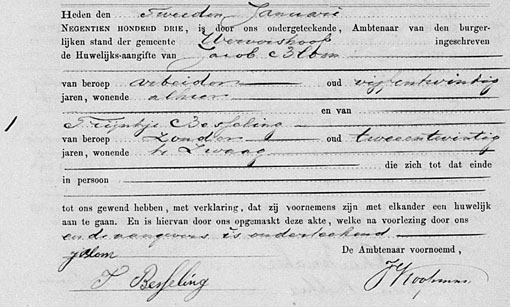 Heden den Tweeden Januari
Negentien honderd drie, is door ons ondergeteekende, Ambtenaar van den burger-
lijken stand der gemeente Wervershoof ingeschreven
de Huwelijks-aangifte van Jacob Blom
van beroep arbeider oud vijfentwintig
jaren, wonende alhier
en van
1
Trijntje Besseling
van beroep zonder oud tweeentwintig
jaren, wonende te Zwaag
die zich tot dat einde
in persoon
tot ons gewend hebben, met verklaring, dat zij voornemens zijn met elkander een huwelijk
aan te gaan. En is hiervan door ons opgemaakt deze akte, welke na voorlezing door ons
en de aangevers is onderteekend.
De Ambtenaar voornoemd,
J Blom
T Besseling
Koopman